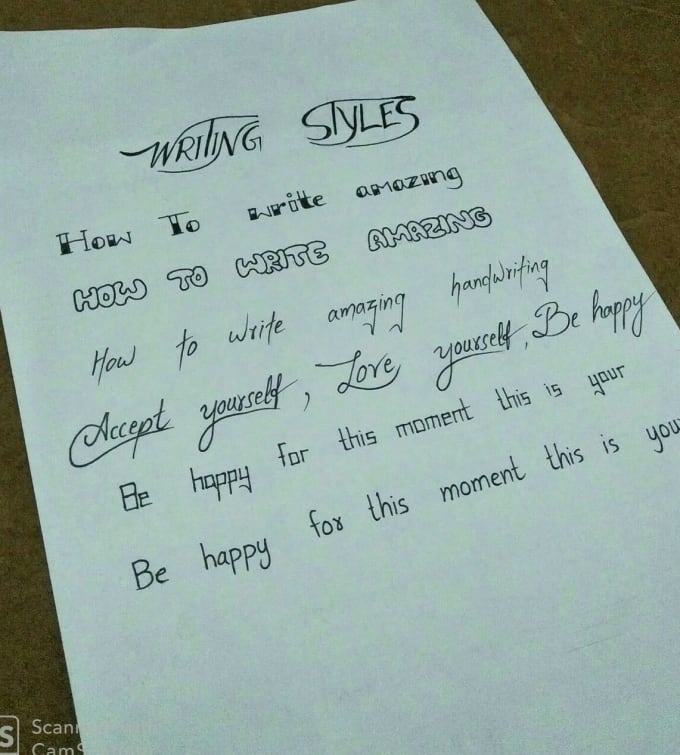 WRITING STYLES
How To write amazing
HOW TO WRITE AMAZING
How to write amazing handwriting
Accept yourself, Love yourself, Be happy
Be happy for this moment this is your
Be happy for this moment this is you
S